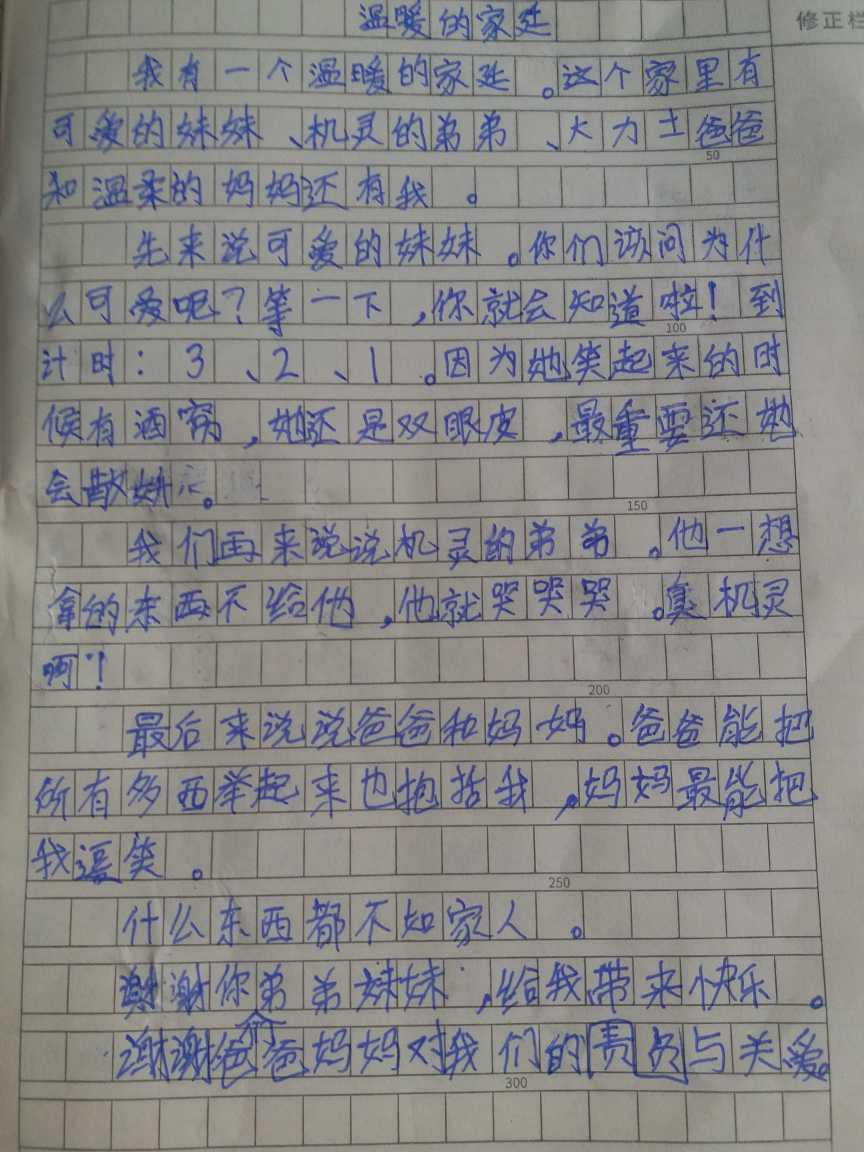 温暖的家廷
修正栏
我有一个温暖的家廷。这个家里有
可爱的妹妹、机灵的弟弟、大力士爸爸
50
和温柔的妈妈还有我。
先来说可爱的妹妹。你们该问为什
么可爱呢？等一下，你就会知道啦！到
100
计时：3、2、1。因为她笑起来的时
候有酒窝，她还是双眼皮，最重要还她
会散娇。
150
我们再来说说机灵的弟弟。他一想
拿的东西不给他，他就哭哭哭。真机灵
啊！
200
最后来说说爸爸和妈妈。爸爸能把
所有多西举起来也抱括我，妈妈最能把
我逗笑。
250
什么东西都不如家人。
谢谢你们弟弟妹妹，给我带来快乐。
谢谢爸爸妈妈对我们的责负与关爱。
300